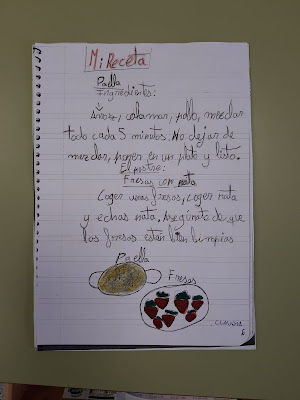 Mi Receta
Paella
Ingredientes:
Arroz, calamar, pollo, mezclar
todo cada 5 minutos. No dejar de
mezclar, poner en un plato y listo.
El postre:
Fresas con nata
Coger unas fresas, coger nata
y echas nata. Asegúrate de que
las fresas estén bien limpias
Paella
Fresas